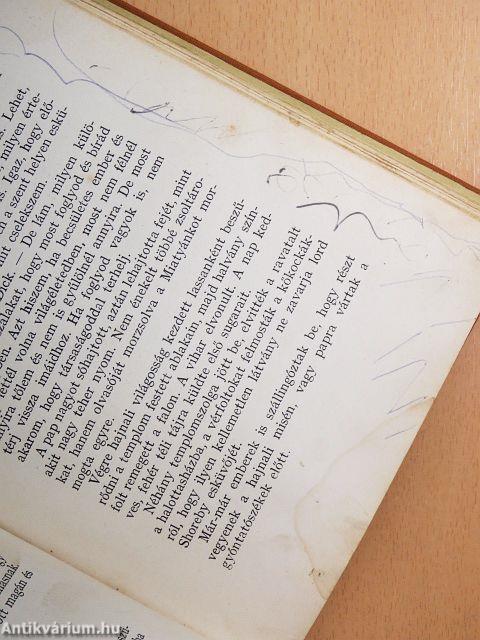 s. Lehet,
milyen érte-
s igaz, hogy elő-
n a szent helyen eskü-
mit cselekszem.
Dick. — De lám, milyen külö-
szálakat, hogy most foglyod és barád
en. Azt hiszem, ha becsületes ember és
lettél volna világéletedben, most nem félnél
nnyira tőlem és nem is gyűlölnél annyira. De most
térj vissza imáidhoz. Ha foglyod vagyok is, nem
akarom, hogy társaságoddal terhelj.
A pap nagyot sóhajtott, aztán lehajtotta fejét, mint
akit nagy teher nyom. Nem énekelt többé zsoltáro-
kat, hanem olvasóját morzsolva a Miatyánkot mor-
mogta egyre.
Végre hajnali világosság kezdett lassanként beszű-
rődni a templom festett ablakain, majd halvány szín-
folt remegett a falon. A vihar elvonult. A nap ked-
ves, fehér téli tájra küldte első sugarait.
Néhány templomszolga jött be, elvitték a ravatalt
a halottasházba, a vérfoltokat felmosták a kőkockák-
ról, hogy ilyen kellemetlen látvány ne zavarja lord
Shoreby esküvőjét.
Már-már emberek is szállingóztak be, hogy részt
vegyenek a hajnali misén, vagy papra vártak a
gyóntatószékek előtt.
gy
másnak.
ott magán és
Antikvárium.hu